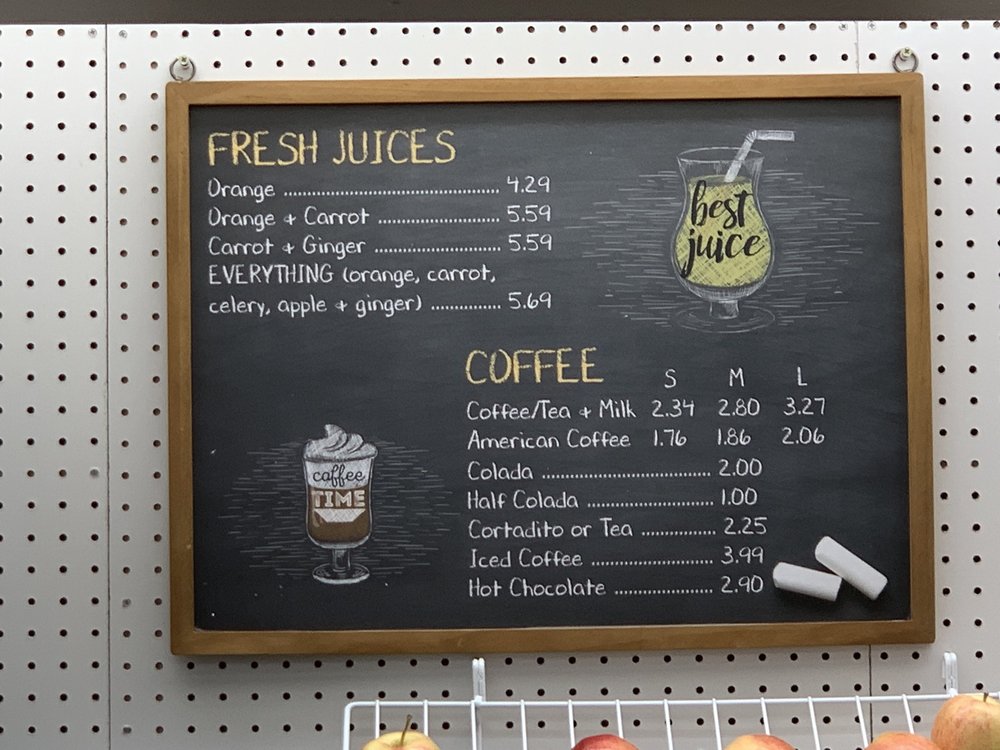 FRESH JUICES
Orange ........ 4.29
Orange + Carrot ........ 5.59
Carrot + Ginger ........ 5.59
EVERYTHING (orange, carrot,
celery, apple + ginger) ........ 5.69
best
juice
COFFEE
S M L
Coffee/Tea + Milk 2.34 2.80 3.27
American Coffee 1.76 1.86 2.06
Colada ........ 2.00
Half Colada ........ 1.00
Cortadito or Tea ........ 2.25
Iced Coffee ........ 3.99
Hot Chocolate ........ 2.90
coffee
TIME